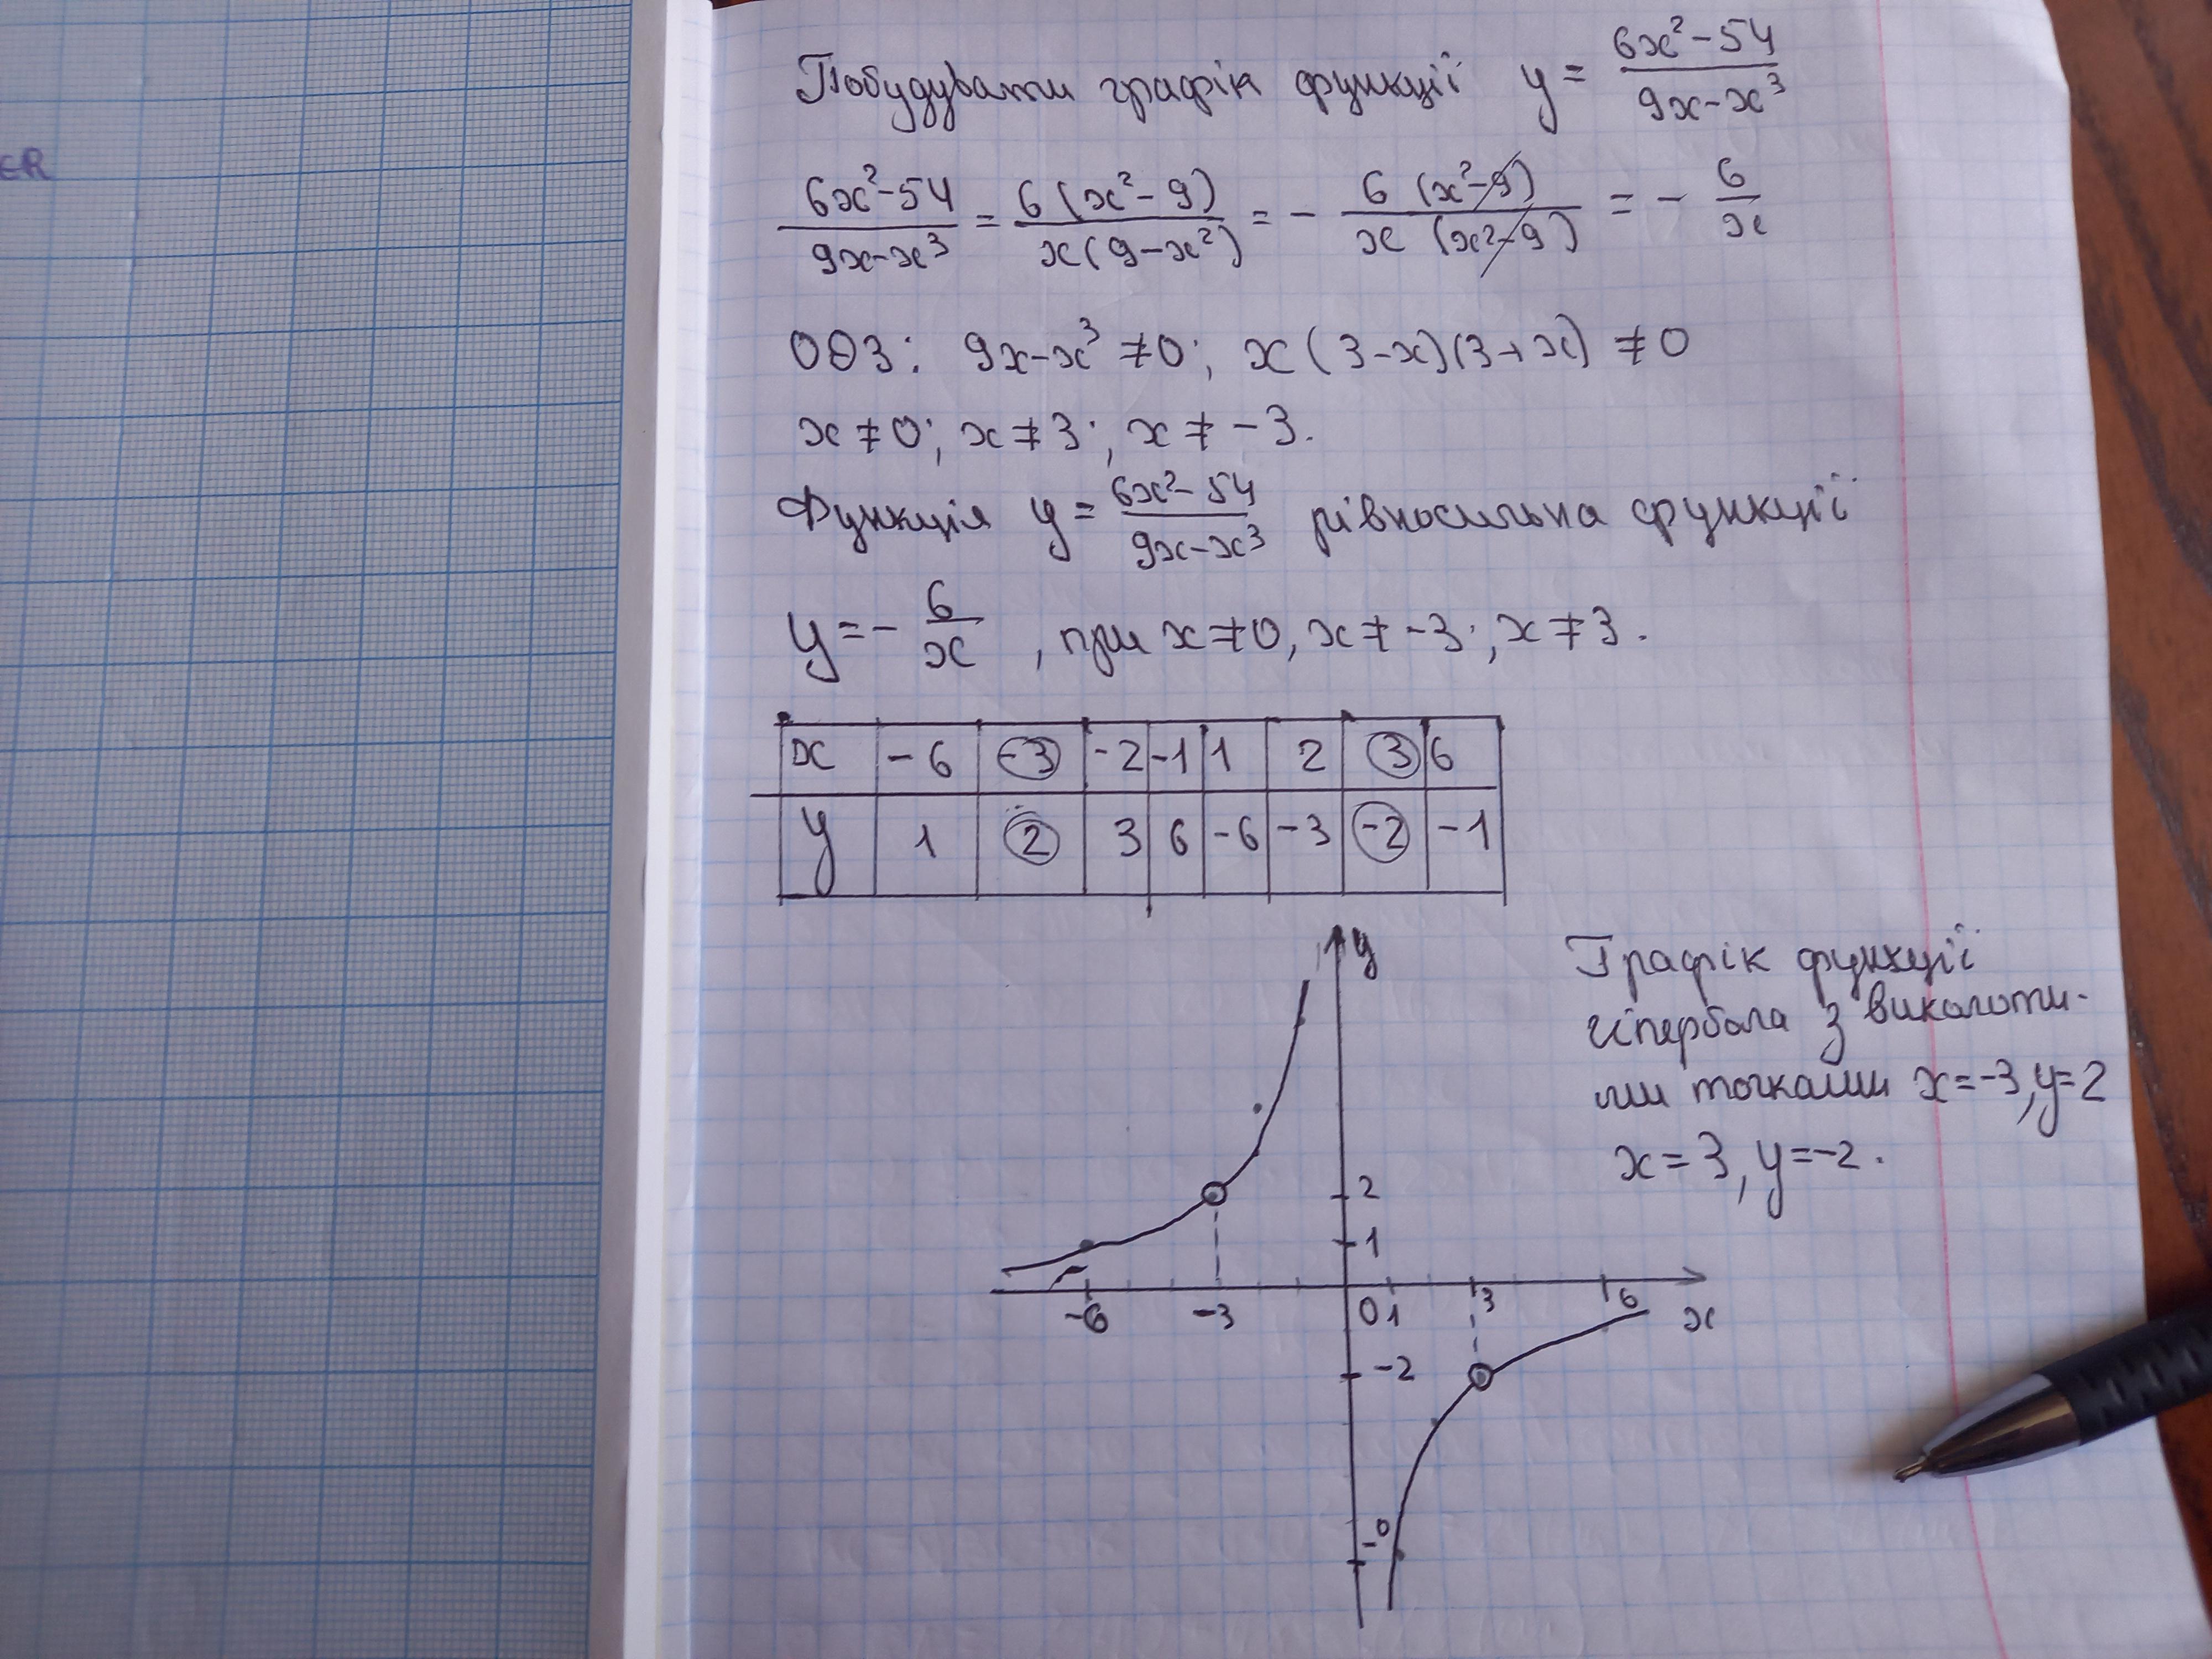 ER
Побудувати графік функції y = (6x² - 54)/(9x - x³)
(6x² - 54)/(9x - x³) = 6(x² - 9)/x(9 - x²) = - 6(x² - 9)/x(x² - 9) = - 6/x
ОДЗ: 9x - x³ ≠ 0; x(3 - x)(3 + x) ≠ 0
x ≠ 0; x ≠ 3; x ≠ -3.
Функція y = (6x² - 54)/(9x - x³) рівносильна функції
y = - 6/x, при x ≠ 0, x ≠ -3; x ≠ 3.
x -6 -3 -2 -1 1 2 3 6
y 1 2 3 6 -6 -3 -2 -1
y
Графік функції
гіпербола з виколоти-
ми точками x = -3, y = 2
x = 3, y = -2.
2
1
-6 -3 0 1 3 6 x
-2